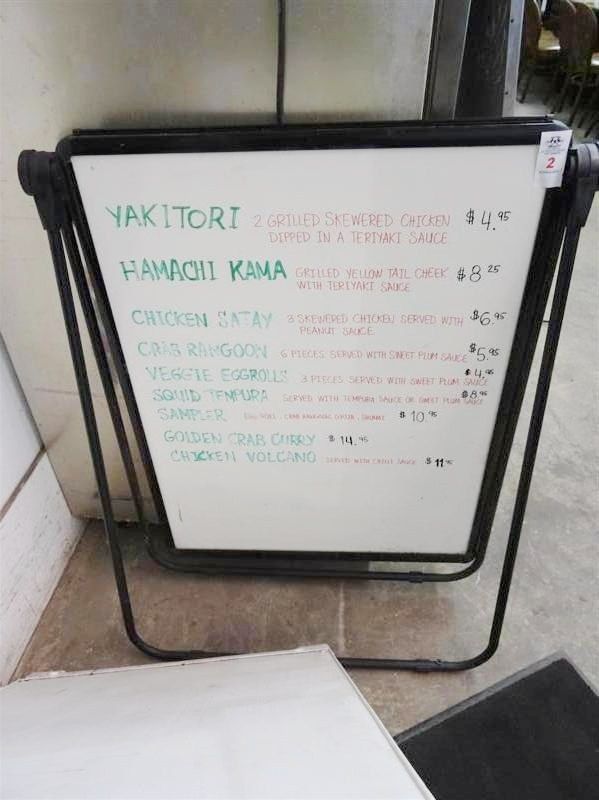 2
YAKITORI 2 GRILLED SKEWERED CHICKEN $4.95
DIPPED IN A TERIYAKI SAUCE
HAMACHI KAMA GRILLED YELLOW TAIL CHEEK $8 25
WITH TERIYAKI SAUCE
CHICKEN SATAY 3 SKEWERED CHICKEN SERVED WITH $6.95
PEANUT SAUCE
CRAB RANGOON 6 PIECES SERVED WITH SWEET PLUM SAUCE $5.95
VEGGIE EGGROLLS 3 PIECES SERVED WITH SWEET PLUM SAUCE $4.95
SQUID TEMPURA SERVED WITH TEMPURA SAUCE OR SWEET PLUM SAUCE $8.95
SAMPLER EGG ROLL, CRAB RANGOON, $10.95
GOLDEN CRAB CURRY $14.95
CHICKEN VOLCANO SERVED WITH SAUCE $11.95